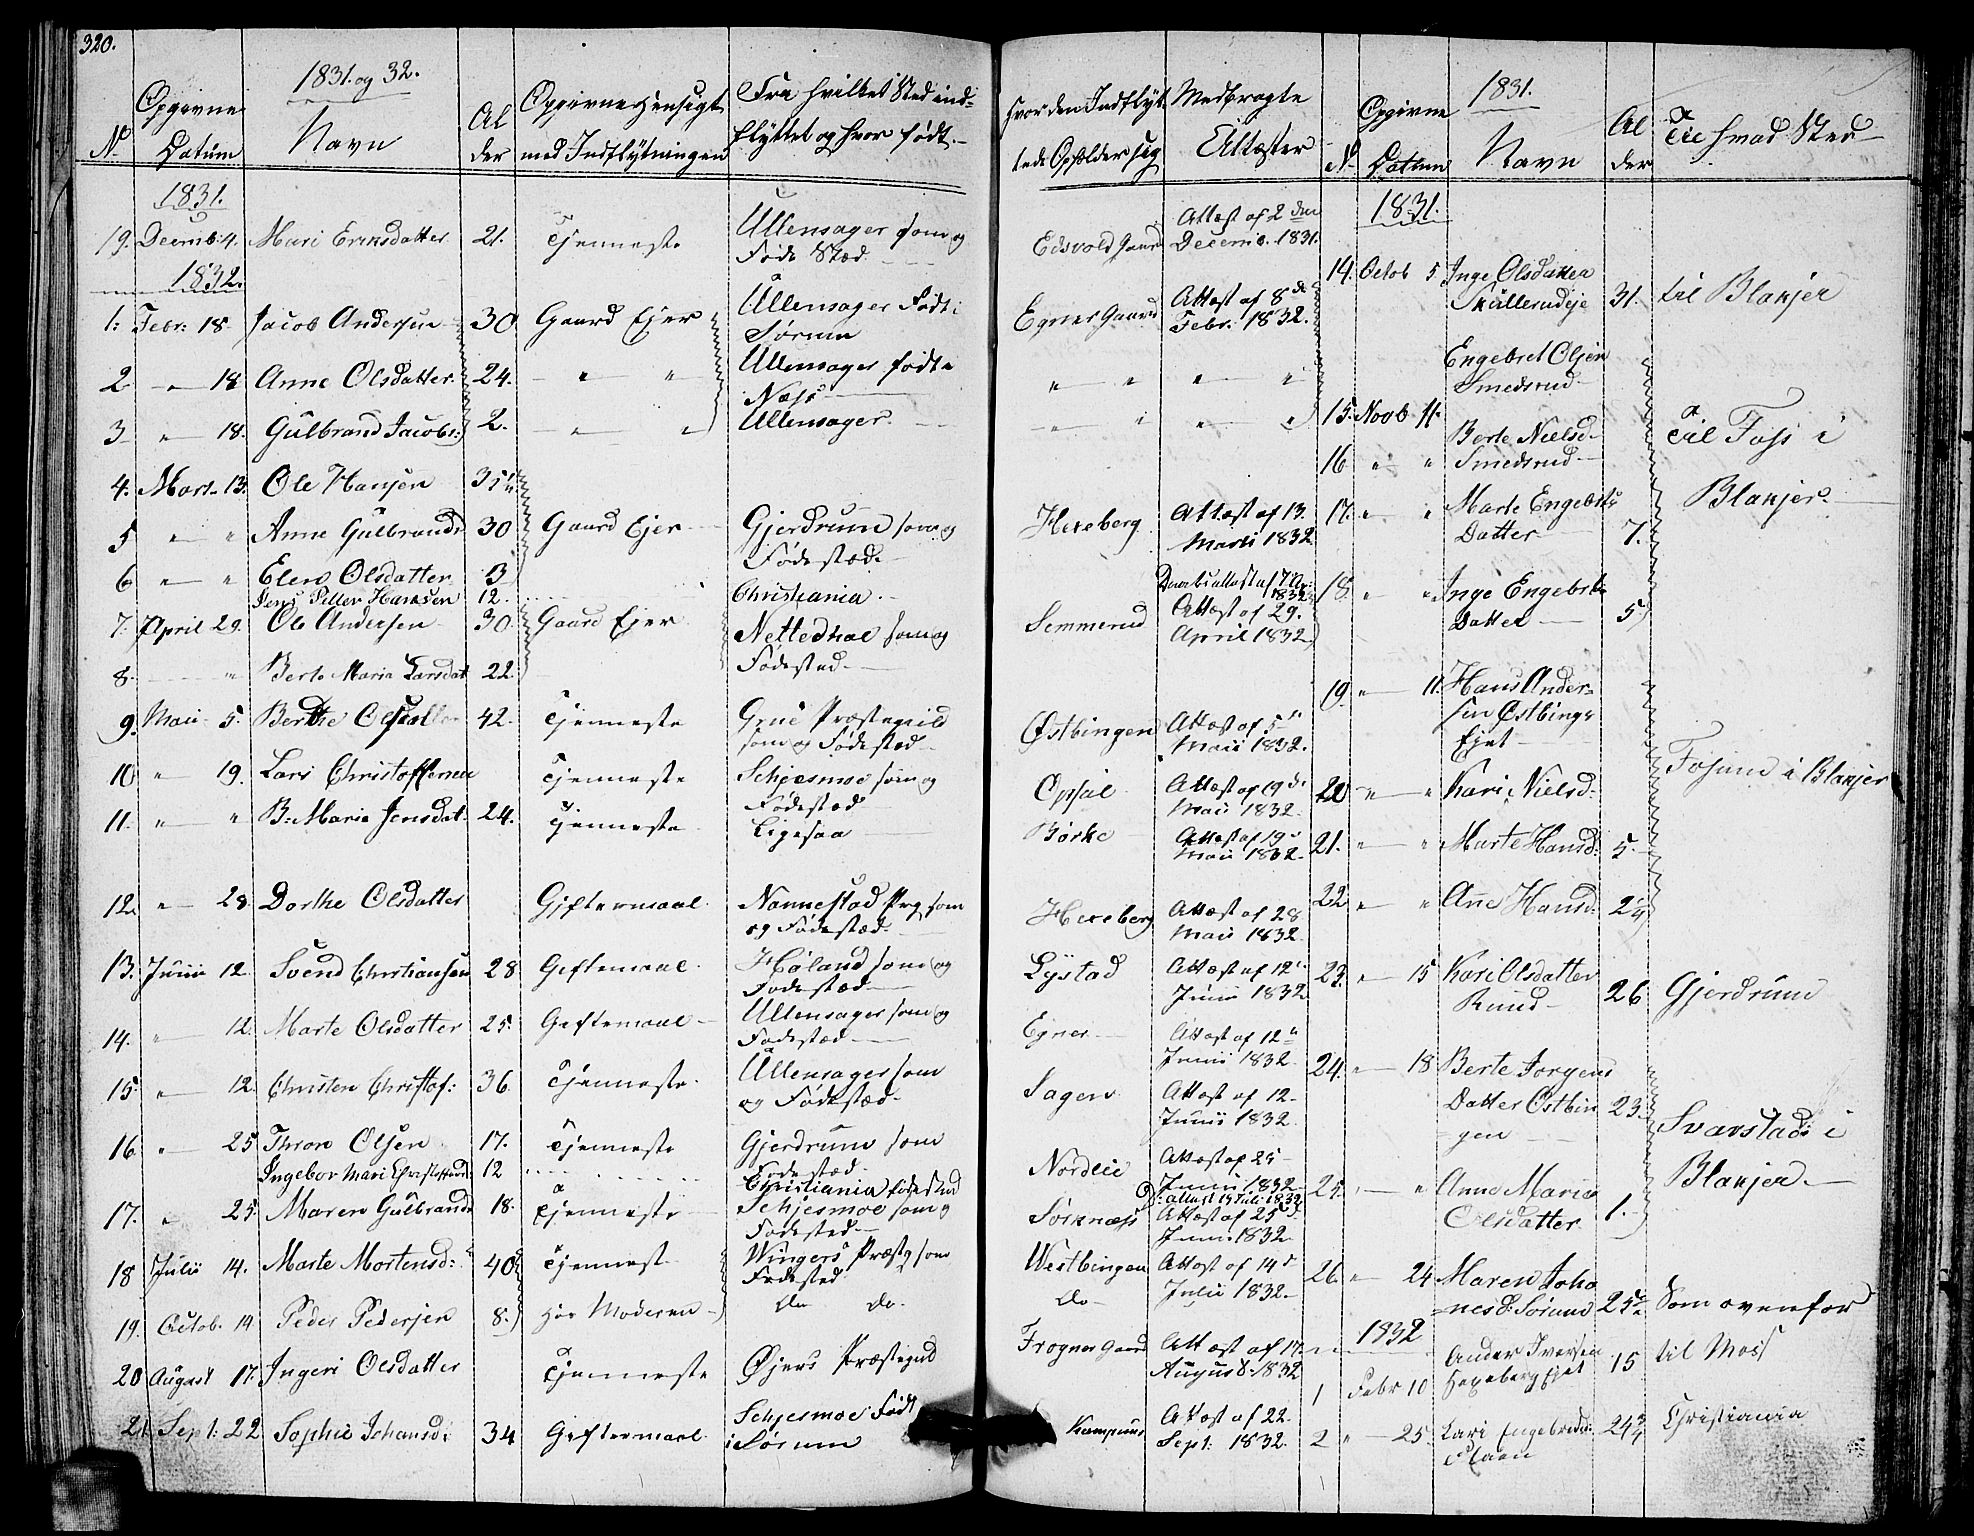 320.
1831. og 32.
No
Opgivne
Datum
Navn
Al
der
Opgivne Hensigt
med Indflytningen
Fra hvilket Sted ind-
flyttet og hvor født.
hvor den Indflyt
tede Opholder sig
Medbragte
Attæster
1831.
19. Decemb: 4. Mari Eriksdatter 21. Tjenneste Ullensager som og
Føde Stæd
Eidsvold Gaard Attæst af 2 den
Decemb. 1831.
1832.
1. Febr: 18. Jacob Andersen 30 Gaard Ejer Ullensager Født i
Sørum
Egner Gaard Attæst af 8 de
Febr. 1832.
2 " 18 Anne Olsdatter 24. " " Ullensager født i
Næss
" " " "
3 " 18. Gulbrand Jacobs: 2. " " Ullensager.
" " " "
4. Marts 13. Ole Hansen 35
5 " " Anne Gulbrands 30 Gaard Ejer Gjerdrum som og
Fødestæd
Hexeberg Attæst af 13
Marti 1832
6 " " Elen Olsdatter 3
Jens Peter Hansen 12. Christiania
Daabsattest af
1832
7. April 29. Ole Andersen 30. Gaard Ejer Nettedhal som og
Fødested
Semmerud Attæst af 29.
April 1832
8. " Berte Maria Larsdat 22
9. Maii 5. Berthe Olsdatter 42. Tjenneste Grue Præstegield
som og Fødestæd
Østbingen Attæst af 5
Maii 1832.
10 " 19. Lars Christoffersen Tjenneste Schjesmoe som og
Fødestæd
Opsal Attæst af 19 de
Maii 1832.
11. " " B: Maria Jensdat: 24. Tjenneste Ligesaa
Børke Attæst af 19
Maii 1832.
12. " 28. Dorthe Olsdatter Giftermaal Nannestad Prg. som
og Fødestæd
Hexeberg Attæst af 28
Maii 1832.
13. Junii 12. Svend Christiansen 28 Giftemaal Høland som og
Fødestæd
Lystad Attæst af 12
Junii 1832
14. " 12. Marte Olsdatter 25. Giftemaal Ullensager som og
Fødestæd
Egner Attæst af 12
Junii 1832
15. " 12. Christen Christof: 36. Tjenneste Ullensager som
og Fødestæd
Sagen Attæst af 12
Junii 1832
16. " 25 Thron Olsen 17. Tjenneste Gjerdrum som
Fødestæd
Nordlie Attæst af 25
Junii 1832
Ingebor Mari Christoffersd: 12 Christiania fødested
attest 19 Juli 1832
17. " 25. Maren Gulbrands 18. Tjenneste Schjesmoe som og
Fødested
Sørknæss Attæst af 25
Junii 1832
18 Julii 14. Marte Mortensd: 40 Tjennest Wingers Præstg som
Fødested
Westbingen Attæst af 14
Julii 1832
19. Octob. 14 Peder Pedersen 8. Hos Moderen Do Do.
Do
20 August 17. Ingeri Olsdatter Tjenneste Øjers Præstegield
Frogner Gaard Attæst af 17
August 1832
21 Sept: 22 Sophie Johansd: 34 Giftermaal Schjesmoe Født
i Sørum
Kampuus Attæst af 22
Sept: 1832.
No
Opgivne
Datum
1831.
Navn
Al
der
Til hvad Sted
1831.
14. Octob 5 Inge Olsdatter
Skullerudeje 31. til Blakjer
Engebret Olsen
Smedsrud
15. Novb 11.
Til Foss i
Blakjer
16 " " Berte Nielsd
Smedsrud
17. " " Marte Engebrets
Datter 7.
18. " " Inge Engebrets
Datter 5
19. " 11. Hans Ander-
sen Østbings
Ejet
Fosum i Blakjer
20 " " Kari Nielsd:
21. " " Marte Hansd: 5.
22 " " Anne Hansd: 2
23. " 15 Kari Olsdatter
Ruud 26 Gjerdrum
24. " 18 Berte Jorgens
Datter Østbin
gen 23.
Svarstad i
Blakjer
25. " " Anne Marie
Olsdatter 1.
26. " 24 Maren Joha
nesd: Sørum 25 Som ovenfor
1832
1 Febr 10 Ander Iversen
Hexeberg Ejet 15 til Moss
2 " 25. Lars Engebretds: 24 Christiania